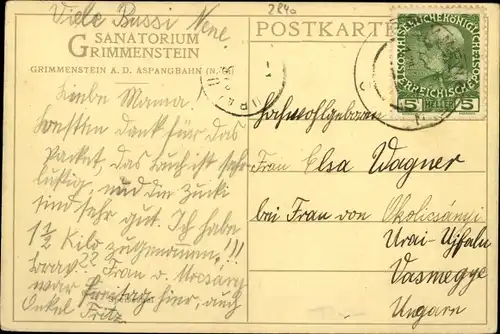 Viele Bussi Nene.
284a
SANATORIUM
GRIMMENSTEIN
GRIMMENSTEIN A. D. ASPANGBAHN (N.-Ö.)
Liebe Mama.
Schönsten Dank für das
Packet, das Buch ist sehr
lustig, und die Zucki
sind sehr gut. Ich habe
1 1/2 Kilo zugenommen!!!
brav?? Frau v.
war Freitag hier, auch
Onkel Fritz
POSTKARTE
KAISERLICHE KÖNIGLICHE ÖSTERREICHISCHE POST
5 HELLER 5
Hochwohlgeboren
Frau Elsa Wagner
bei Frau von Okolicsányi
Urai-Ujfalu
Vasmegye
Ungarn